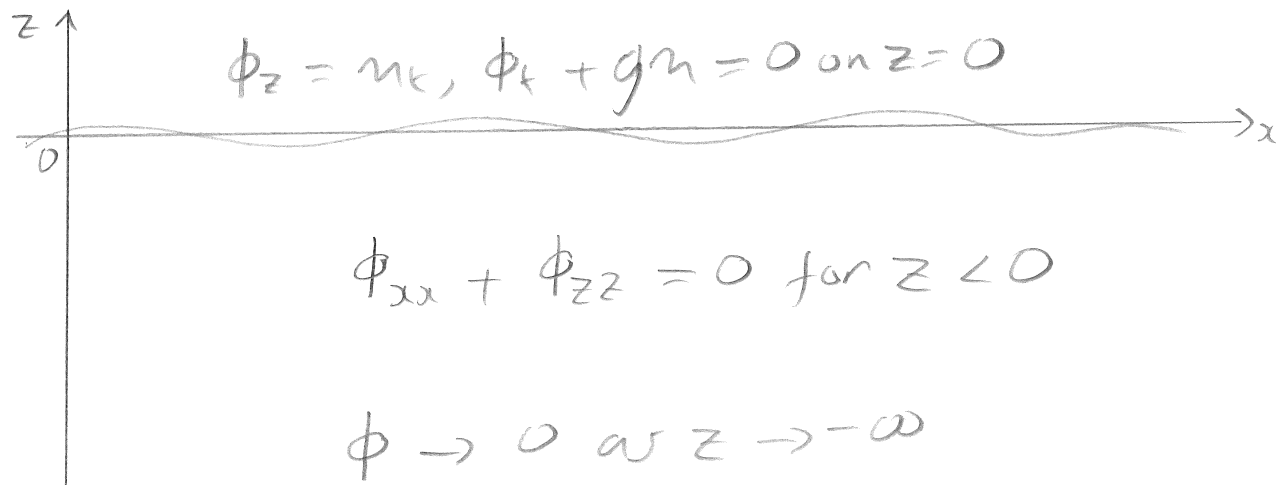 z
ϕ_z = η_t, ϕ_t + gη = 0 on z = 0
x
0
ϕ_xx + ϕ_zz = 0 for z < 0
ϕ → 0 as z → -∞